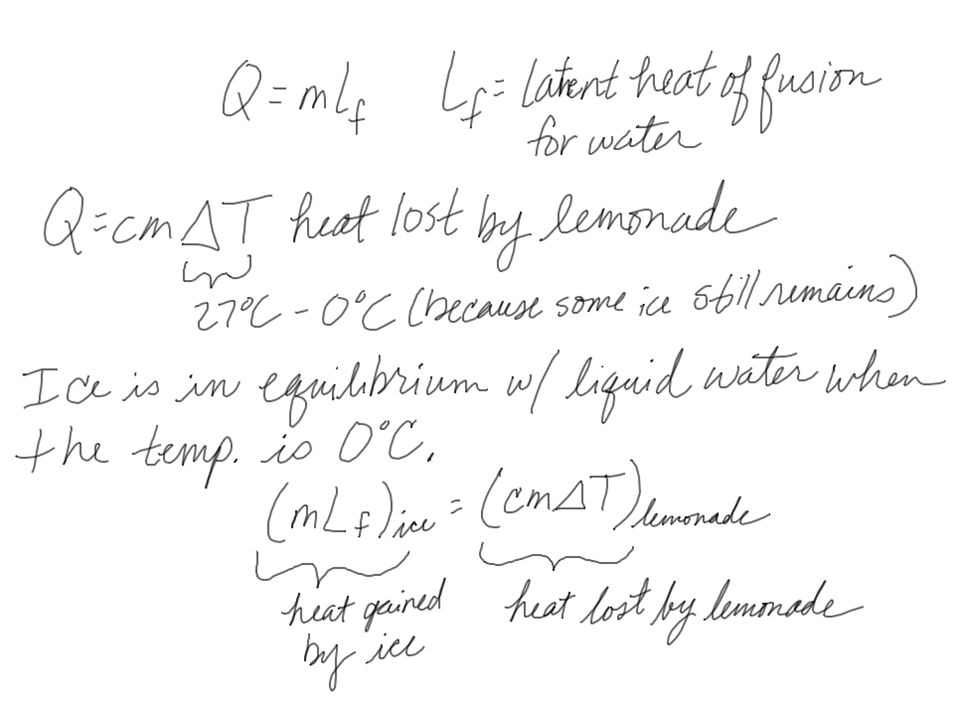 Q = mLf Lf = latent heat of fusion
for water
Q = cmΔT heat lost by lemonade
27°C - 0°C (because some ice still remains)
Ice is in equilibrium w/ liquid water when
the temp. is 0°C.
(mLf)ice = (cmΔT)lemonade
heat gained heat lost by lemonade
by ice